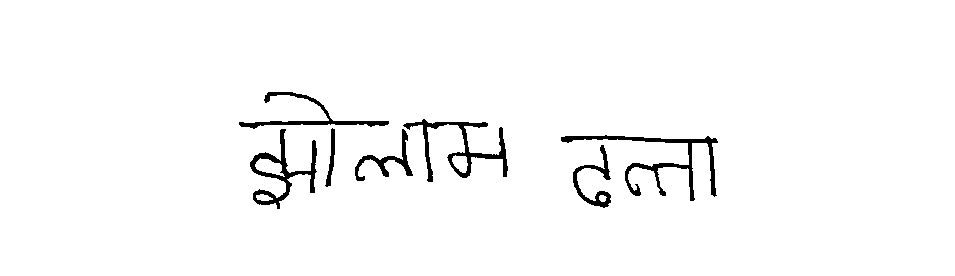 झोलाम ढत्ता